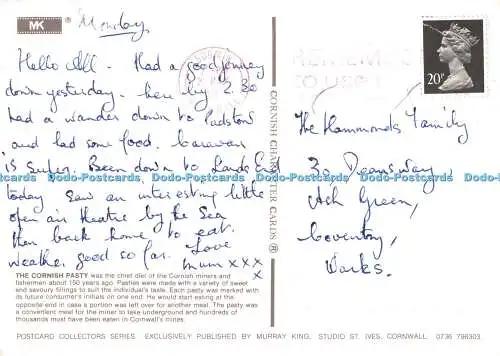 MK
Monday,
Hello All. Had a good journey
down yesterday. here by 2.30
had a wander down to Padstow
and had some food. Caravan
is Super. Been down to Lands End
today saw an interesting little
open air theatre by the Sea
then back home to eat.
weather good so far. Love
mum xxx
x
THE CORNISH PASTY was the chief diet of the Cornish miners and
fishermen about 150 years ago. Pasties were made with a variety of sweet
and savoury fillings to suit the individual's taste. Each pasty was marked with
its future consumer's initials on one end. He would start eating at the
opposite end in case a portion was left over for another meal. The pasty was
a convenient meal for the miner to take underground and hundreds of
thousands must have been eaten in Cornwall's mines.
CORNISH CHARACTER CARDS
REMEMBER
TO USE
20P
The Hammonds Family
38 Deansway,
Ash Green,
Coventry,
Warks.
Dodo-Postcards Dodo-Postcards Dodo-Postcards Dodo-Postcards Dodo-Postcards
POSTCARD COLLECTORS SERIES. EXCLUSIVELY PUBLISHED BY MURRAY KING, STUDIO ST. IVES, CORNWALL. 0736 796303